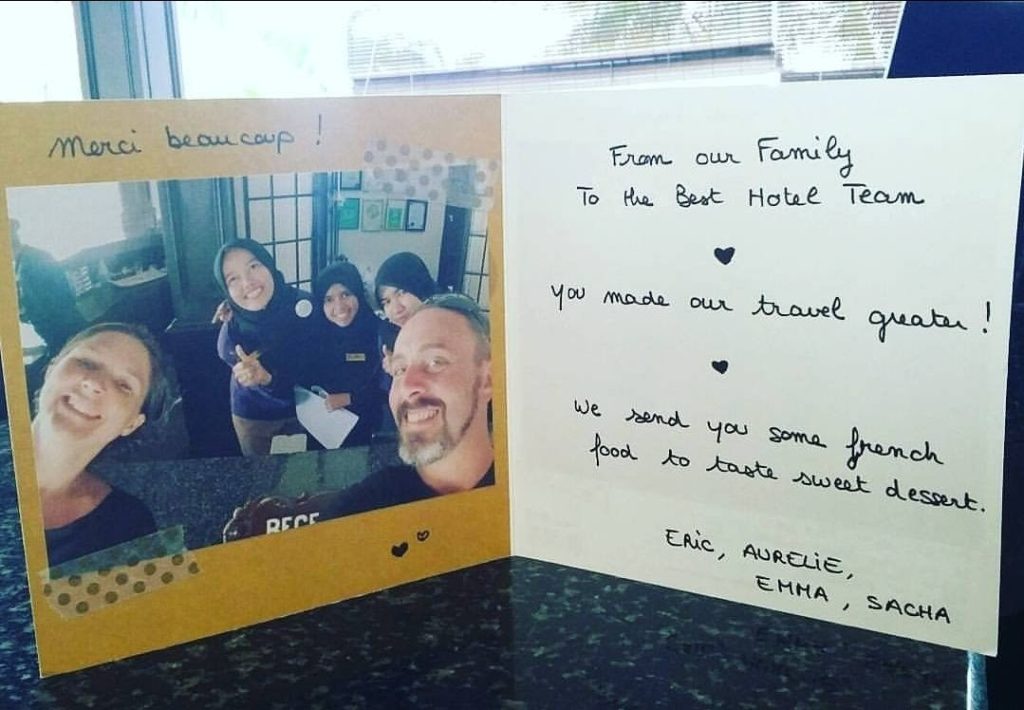 Merci beaucoup !
From our Family
To the Best Hotel Team
you made our travel greater !
We send you some french
food to taste sweet dessert.
ERIC, AURELIE,
EMMA, SACHA